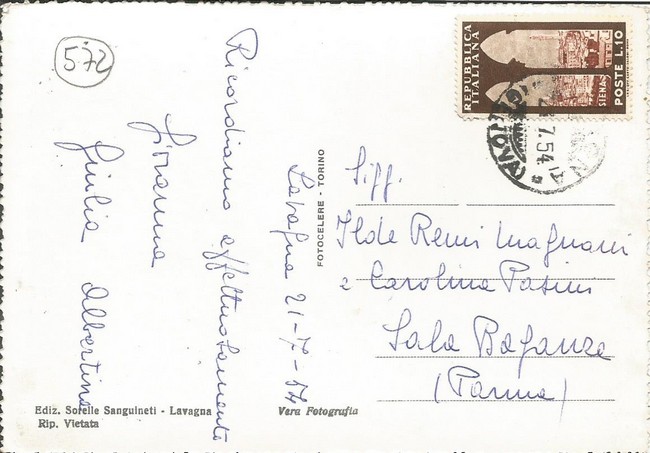 572
Lavagna 21-7-54
Ricordiamo affettuosamente
Giovanna
Giulia Albertina
Ediz. Sorelle Sanguineti - Lavagna
Rip. Vietata
Vera Fotografia
FOTOCELERE - TORINO
REPUBBLICA
ITALIANA
SIENA
POSTE L.10
7.54
Sigg.
Ilde Remi Magnani
e Carolina Pasini
Sala Baganza
(Parma)